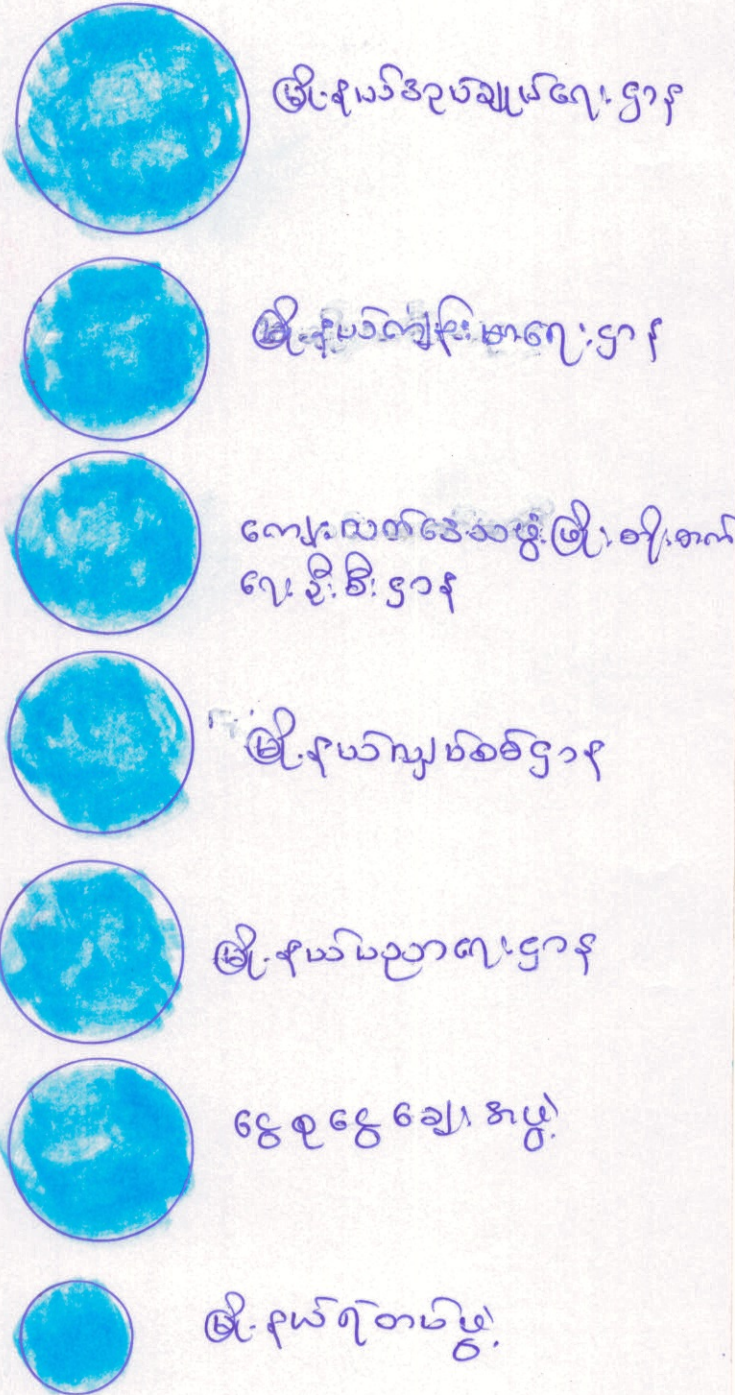 မြို့နယ်အုပ်ချုပ်ရေးဌာန
မြို့နယ်ကျန်းမာရေးဌာန
ကျေးလက်ဒေသဖွံ့ဖြိုးတိုးတက်
ရေးဦးစီးဌာန
မြို့နယ်လျှပ်စစ်ဌာန
မြို့နယ်ပညာရေးဌာန
ငွေစုငွေချေးအဖွဲ့
မြို့နယ်ရဲတပ်ဖွဲ့